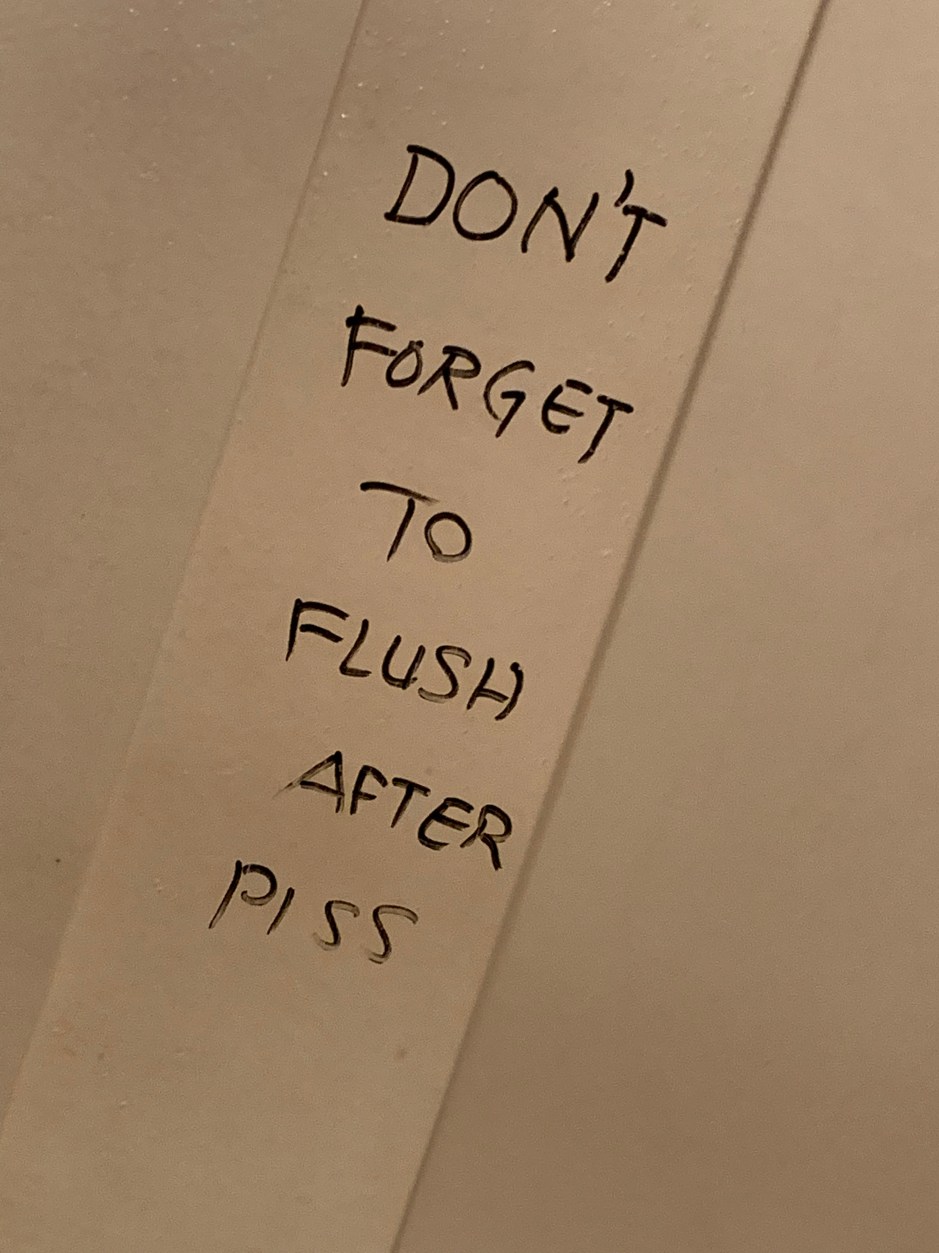 DON'T
FORGET
TO
FLUSH
AFTER
PISS